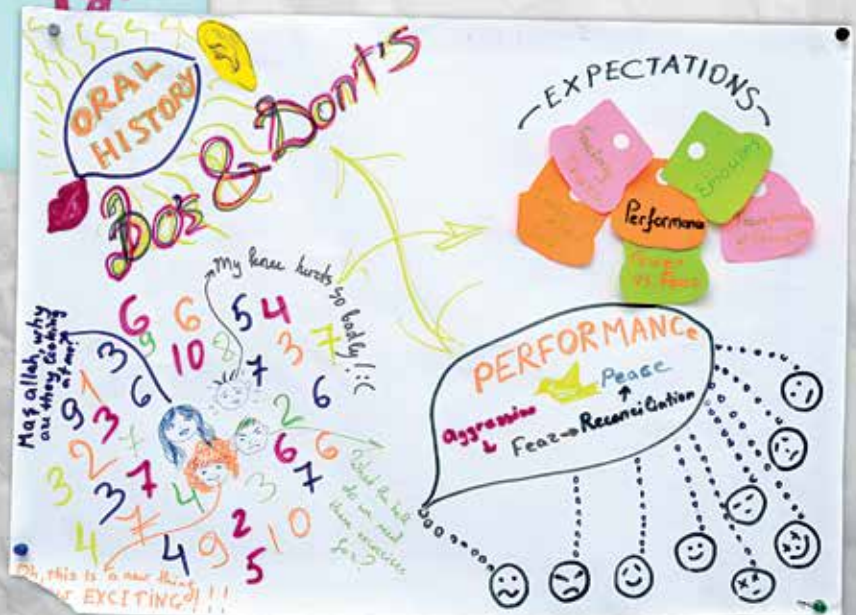 ORAL
HISTORY
Do's & Dont's
EXPECTATIONS
Emotions
Performance
vs
PERFORMANCe
Pease
Aggression
Fear → Reconciliation
My knee hurts so badly! :(
Maşallah, why
are they looking
at me?
6 6 5 4
3 9 10 8 3 7
1 6 7 6
9 3 2
2 7 6 6
3 3 7 4 3 7
7 2 10
4 4 9 5
What the hell
do we need
these exercises
for?
Oh, this is a new thing
EXCITING!!!